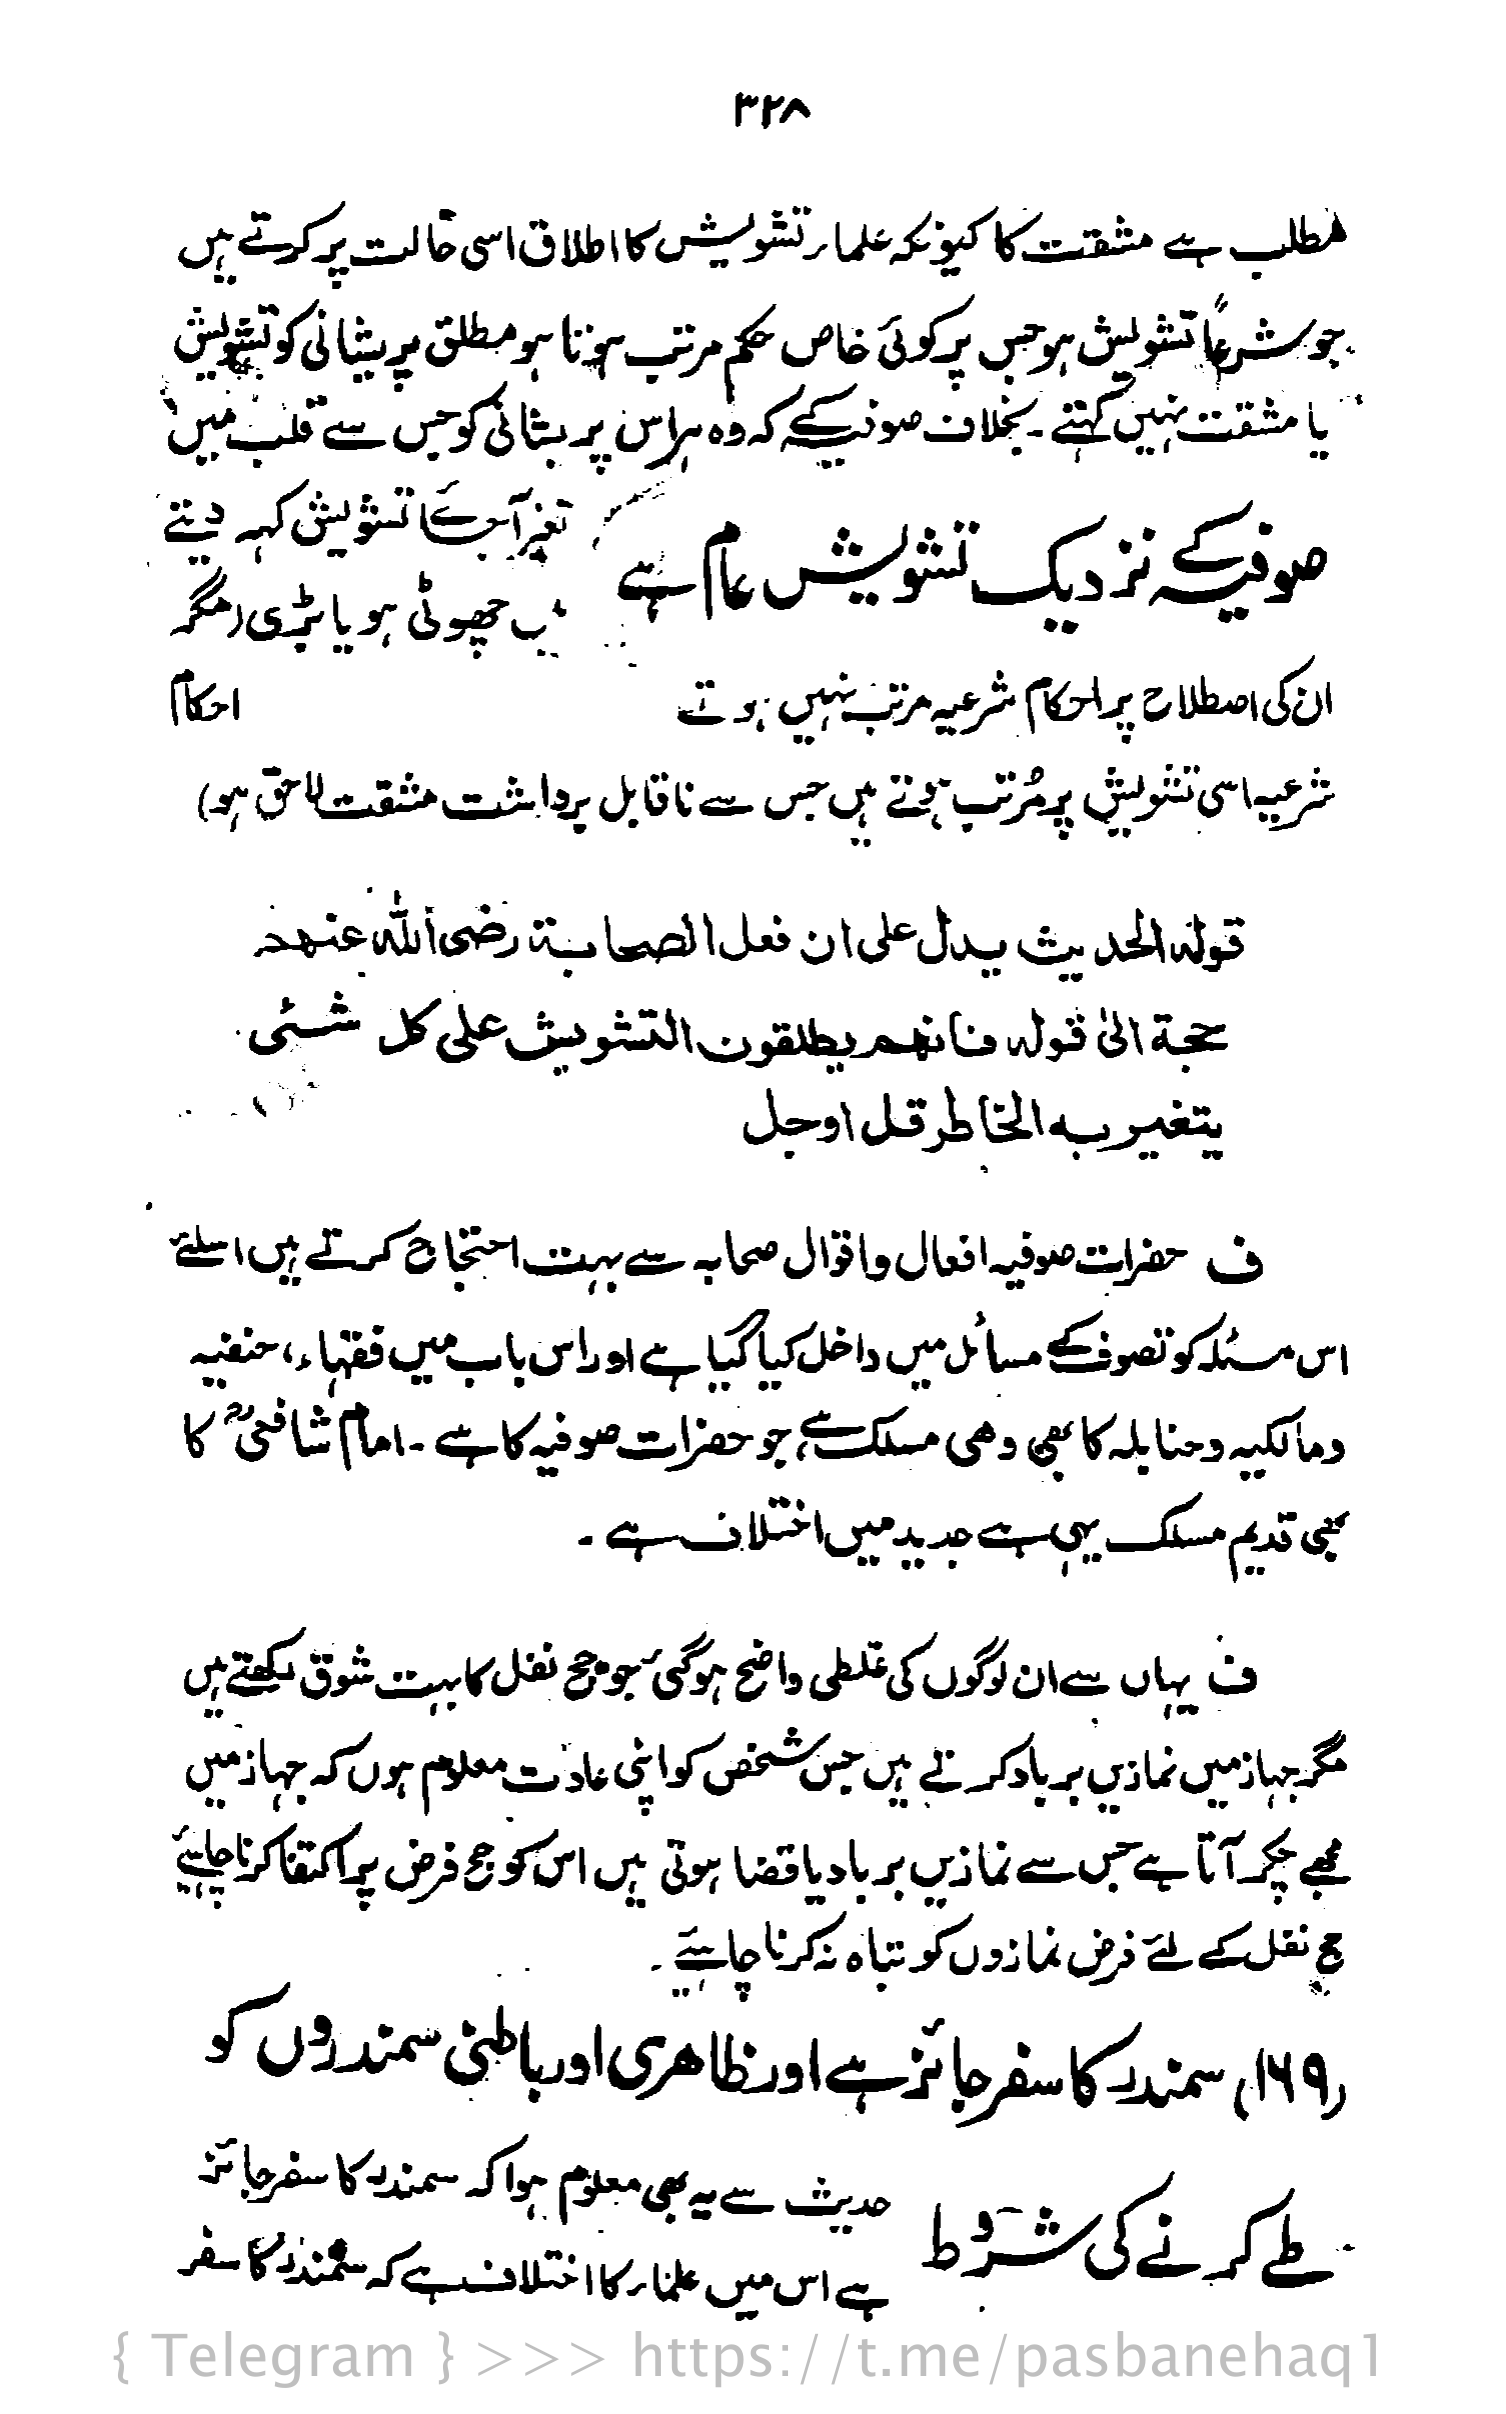 ۳۲۸
مطلب ہے مشقت کا کیونکہ علماء تشویش کا اطلاق اسی حالت پر کرتے ہیں
جو شرعاً تشویش ہو جس پر کوئی خاص حکم مرتب ہوتا ہو مطلق پریشانی کو تشویش
یا مشقت نہیں کہتے۔ بخلاف صوفیہ کے کہ وہ ہر اس پریشانی کو جس سے قلب میں
تغیر آجائے تشویش کہہ دیتے
صوفیہ کے نزدیک تشویش عام ہے
چھوٹی ہو یا بڑی (مگر
ان کی اصطلاح پر احکام شرعیہ مرتب نہیں ہوتے احکام
شرعیہ اسی تشویش پر مُرتب ہوتے ہیں جس سے ناقابل برداشت مشقت لاحق ہو)
قولہ الحدیث یدل علی ان فعل الصحابة رضی اللہ عنهم
حجة الیٰ قولہ فانهم یطلقون التشویش علی کل شئی
یتغیر به الخاطر قل او جل
ف حضرات صوفیہ افعال و اقوال صحابہ سے بہت احتجاج کرتے ہیں اسلئے
اس مسئلہ کو تصوف کے مسائل میں داخل کیا گیا ہے اور اس باب میں فقہاء، حنفیہ
و مالکیہ و حنابلہ کا بھی وہی مسلک ہے، جو حضرات صوفیہ کا ہے۔ امام شافعیؒ کا
بھی قدیم مسلک یہی ہے جدید میں اختلاف ہے۔
ف یہاں سے ان لوگوں کی غلطی واضح ہوگئی جو حج نفل کا بہت شوق رکھتے ہیں
مگر جہاز میں نمازیں برباد کرتے ہیں جس شخص کو اپنی عادت معلوم ہوں کہ جہاز میں
مجھے چکر آتا ہے جس سے نمازیں برباد یا قضا ہوتی ہیں اس کو حج فرض پر اکتفا کرنا چاہیئے
حج نفل کے لئے فرض نمازوں کو تباہ نہ کرنا چاہیئے۔
(۱۶۹) سمندر کا سفر جائز ہے اور ظاہری اور باطنی سمندروں کو
طے کرنے کی شروط
حدیث سے یہ بھی معلوم ہوا کہ سمندر کا سفر جائز
ہے اس میں علماء کا اختلاف ہے کہ سمندر کا سفر
{ Telegram } >>> https://t.me/pasbanehaq1